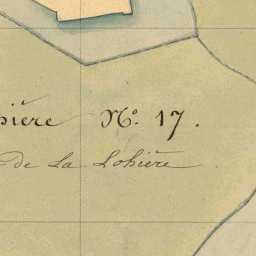 ière N° 17.
de La Lohière